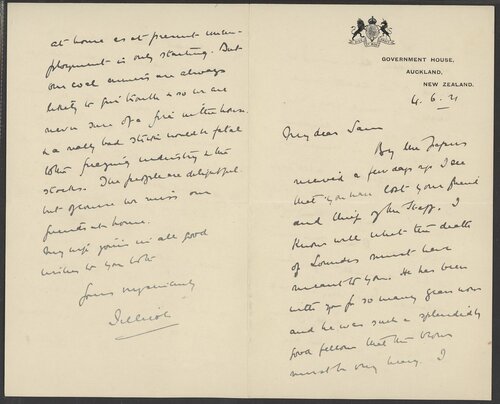 GOVERNMENT HOUSE,
AUCKLAND,
NEW ZEALAND.
4.6.21
My dear Sam
By the Papers
received a few days ago I see
that you have lost your friend
and Chief of the Staff. I
know well what the death
of Lowndes must have
meant to you. He has been
with you for so many years now
and he was such a splendidly
good fellow that the blow
must be very heavy. I
at home as at present unem-
ployment is only starting. But
our coal miners are always
likely to give trouble & so we are
never sure of a fire in the house
& a really bad strike would be fatal
to the freezing industry & the
stocks. The people are delightful
but of course we miss our
friends at home.
My wife joins in all good
wishes to you both
Yours very sincerely
Jellicoe